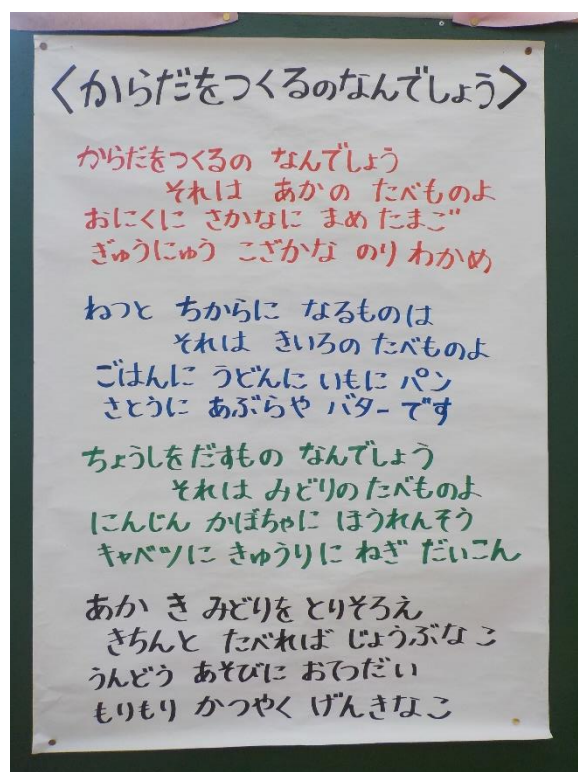 <からだをつくるのなんでしょう>
からだをつくるの なんでしょう
それは あかの たべものよ
おにくに さかなに まめ たまご
ぎゅうにゅう こざかな のり わかめ
ねつと ちからに なるものは
それは きいろの たべものよ
ごはんに うどんに いもに パン
さとうに あぶらや バターです
ちょうしをだすもの なんでしょう
それは みどりの たべものよ
にんじん かぼちゃに ほうれんそう
キャベツに きゅうりに ねぎ だいこん
あか き みどりを とりそろえ
きちんと たべれば じょうぶなこ
うんどう あそびに おてつだい
もりもり かつやく げんきなこ